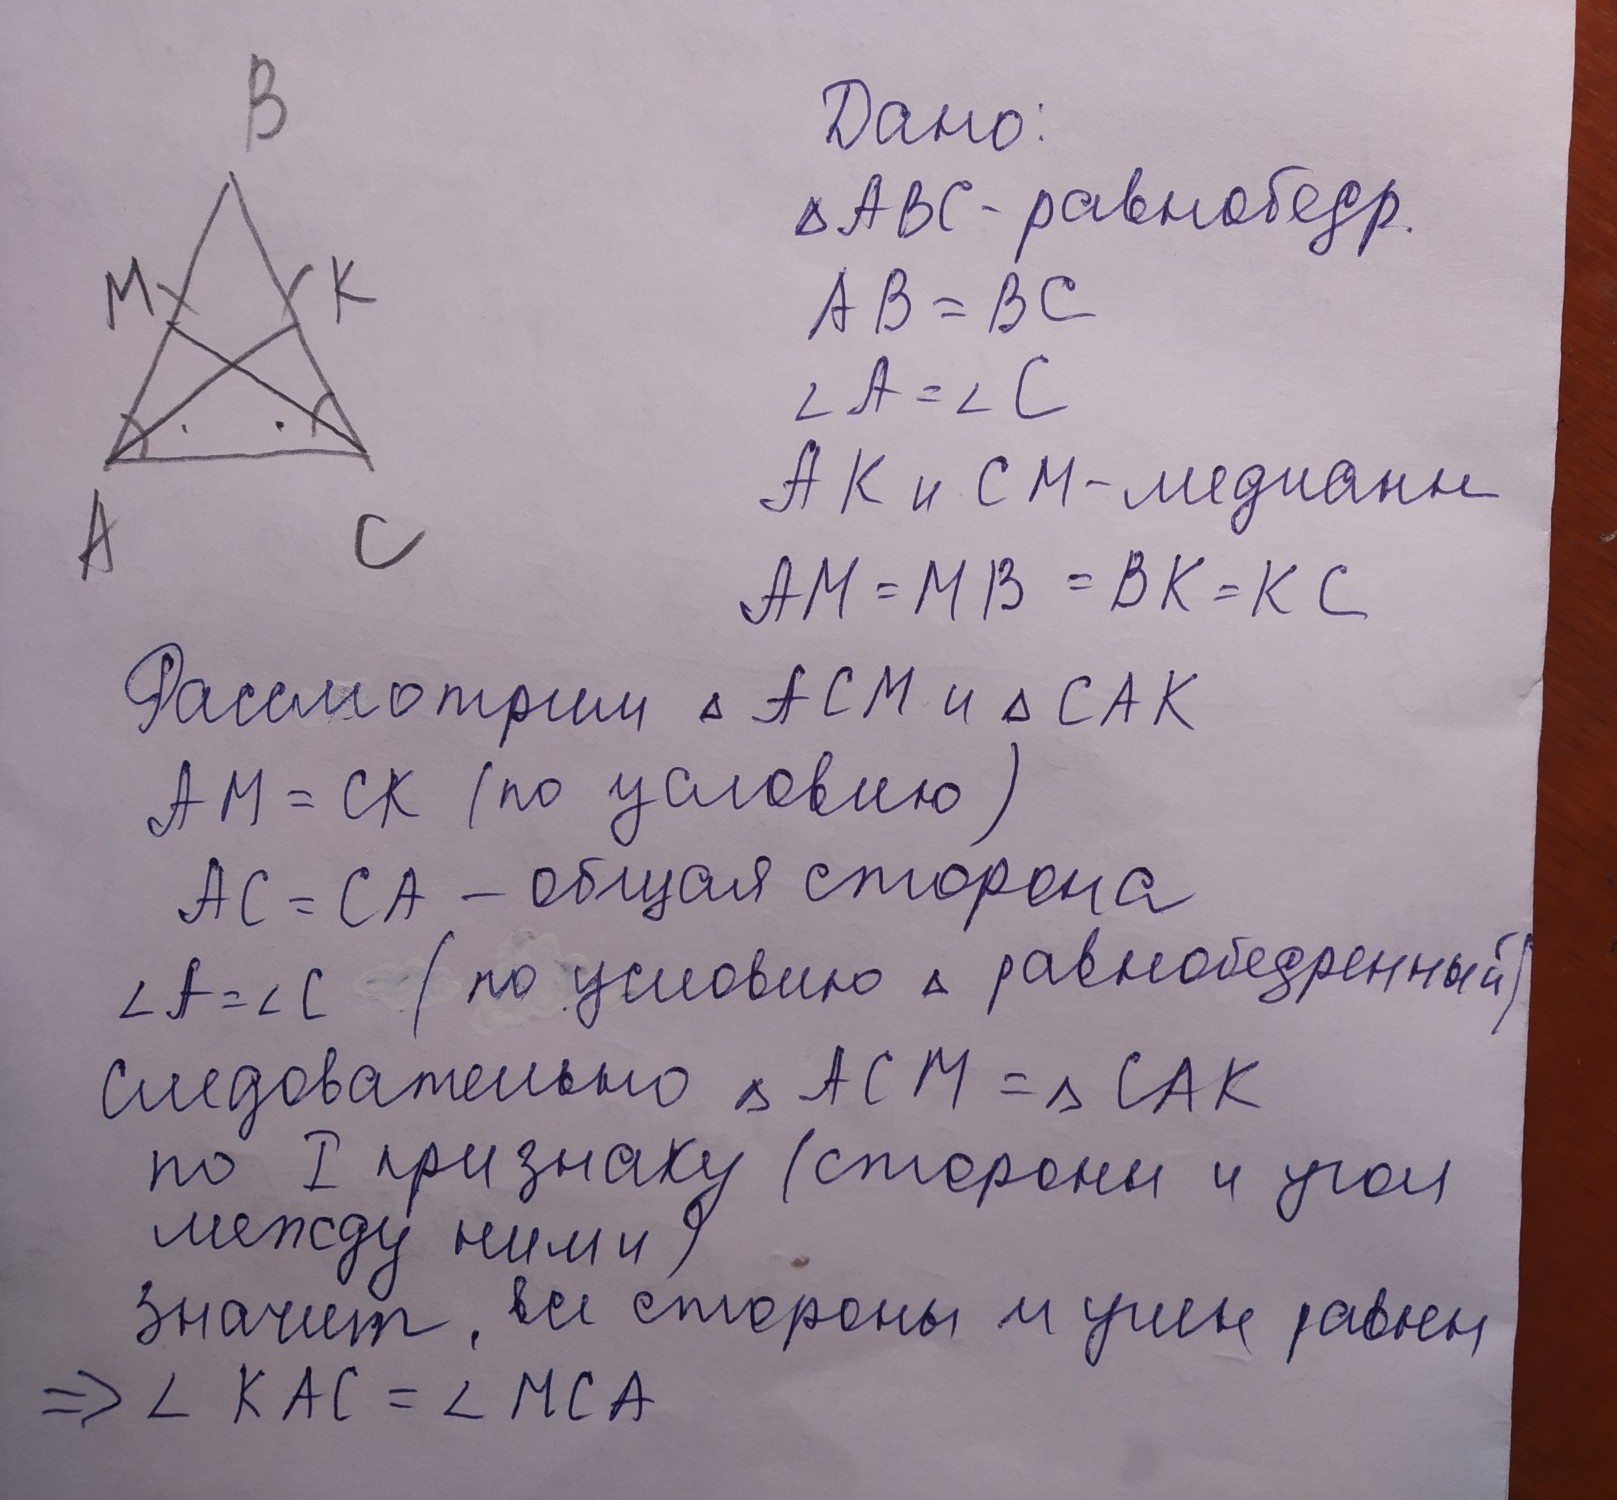 B
M
K
A
C
Дано:
△ABC - равнобедр.
AB = BC
∠A = ∠C
AK и CM - медианы
AM = MB = BK = KC
Рассмотрим △ ACM и △ CAK
AM = CK (по условию)
AC = CA – общая сторона
∠A = ∠C (по условию △ равнобедренный)
Следовательно △ ACM = △ CAK
по I признаку (стороны и угол
между ними)
значит, все стороны и углы равны
=> ∠ KAC = ∠ MCA